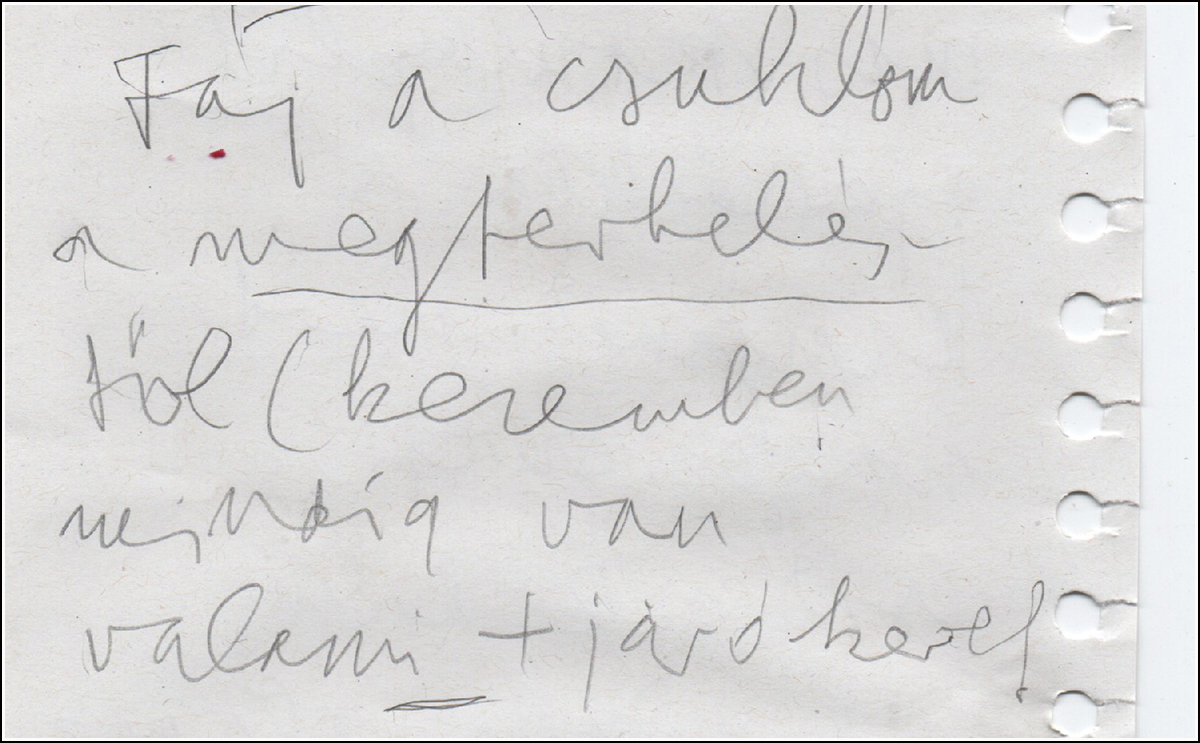 Fáj a csuklóm
a megterhelés-
től (kezemben
mindig van
valami + járókeret